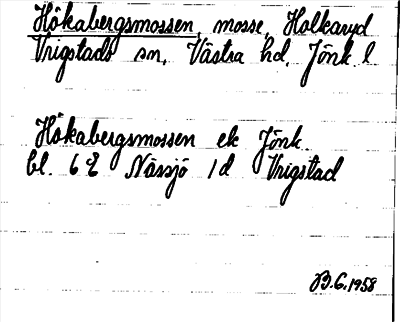 Hökabergsmossen, mosse, Holkaryd
Vrigstads sn, Västra hd, Jönk. l
Hökabergsmossen ek Jönk.
bl. 6 E Nässjö 1 d Vrigstad
B.G. 1958